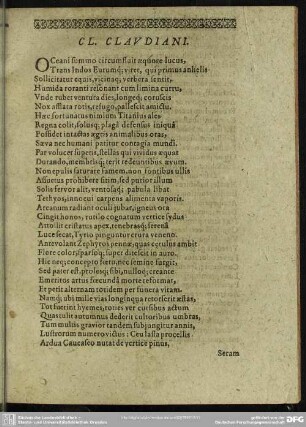 CL. CLAVDIANI.
OCeani summo circumfluit æquore lucus,
Trans Indos Eurumq́; viret, qui primus anhelis
Sollicitatur equis, vicinaq; verbera sentit,
Humida roranti resonant cum limina curru,
Vnde rubet ventura dies, longeq́; coruscis
Nox afflata rotis, refugo pallescit amictu.
Hæc fortunatus nimium Titanius ales
Regna colit, solusq; plaga defensus iniqua
Possidet intactas ægris animalibus oras,
Sæva nec humani patitur contagia mundi.
Par volucer superis, stellas qui vividus æquat
Durando, membrisq́; terit redeuntibus ævum.
Non epulis saturare famem, non fontibus ullis
Assuetus prohibere sitim, sed purior illum
Solis fervor alit, ventosaq́; pabula libat
Tethyos, innocui carpens alimenta vaporis.
Arcanum radiant oculi jubar, igneus ora
Cingit honos, rutilo cognatum vertice sydus
Attollit cristatus apex, tenebrasq́; serena
Luce secat, Tyrio pinguntur crura veneno.
Antevolant Zephyros pennæ, quas cœrulus ambit
Flore color, sparsoq́; super ditescit in auro.
Hic neq; concepto fœtu, nec semine surgit,
Sed pater est, prolesq́; sibi, nulloq́; creante
Emeritos artus fœcunda morte reformat,
Et petit alternam totidem per funera vitam.
Namq; ubi mille vias longinqua retorserit æstas,
Tot fuerint hyemes, toties ver cursibus actum
Quas tulit autumnus dederit cultoribus umbras,
Tum multis gravior tandem subjungitur annis,
Lustrorum numero victus: Ceu lassa procellis
Ardua Caucaseo nutat de vertice pinus,
Seram